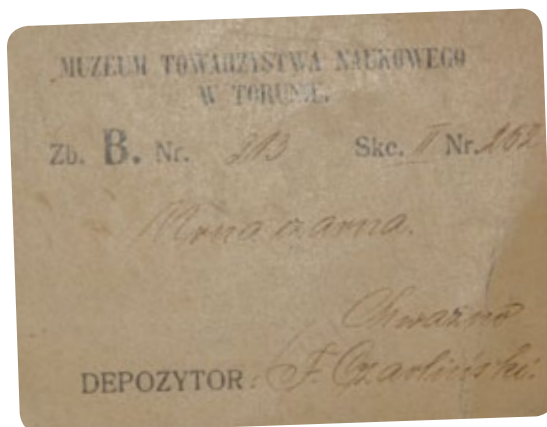 MUZEUM TOWARZYSTWA NAUKOWEGO
W TORUNIU.
Zb. B. Nr. 213 Skc. II Nr. 262
czarna.
Chwarzno
DEPOZYTOR: F. Czarliński.